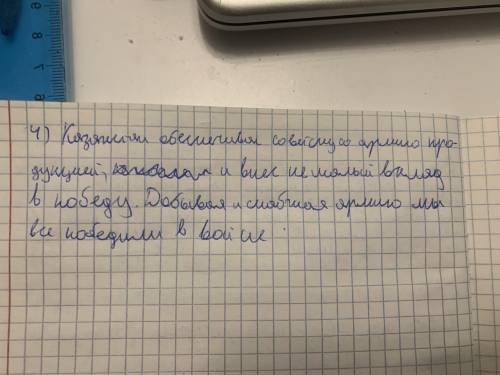 4) Казахстан обеспечивал советскую армию про-
дукцией, и внес немалый вклад
в победу. Добывая и снабжая армию мы
все победили в войне.